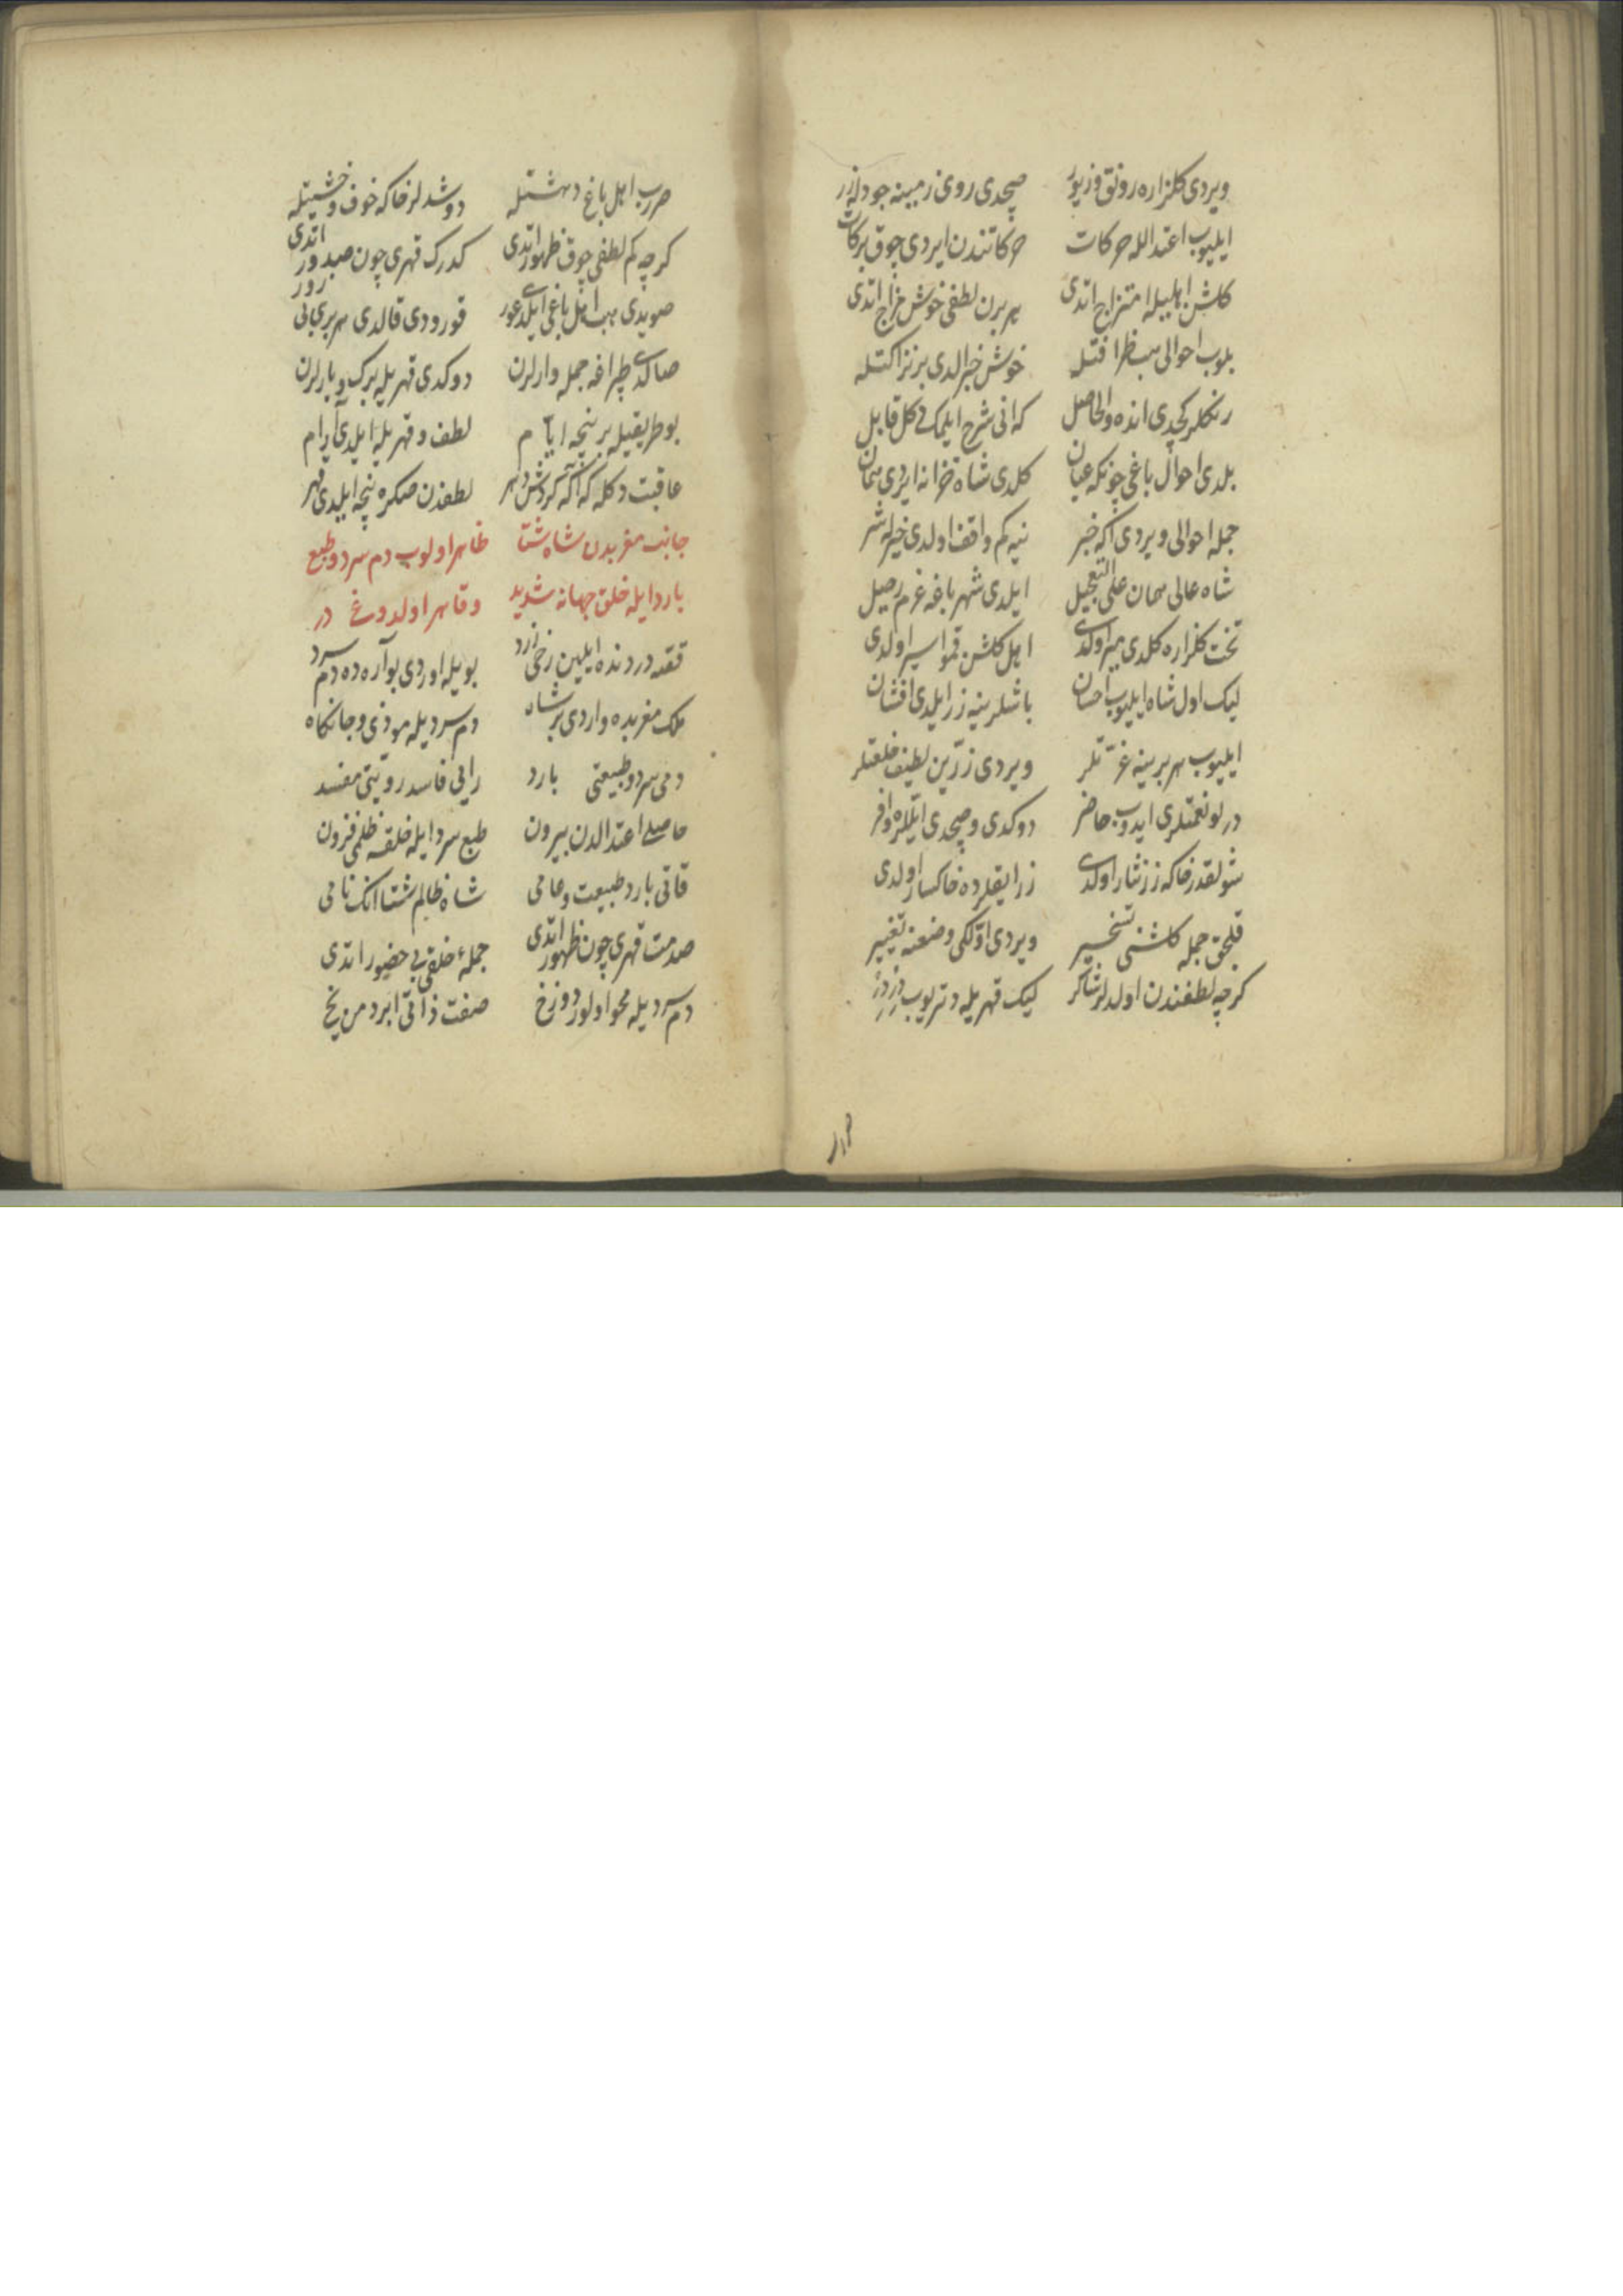 ویردی کلزاره رونق و زیور صچدی روی زمینه جود ایله زر
ایلیوب اعتدالله حرکات حرکاتندن ایردی چوق برکات
کلشن اهلیله امتزاج اتدی هر برن لطفی خوش مزاج اتدی
بلوب احوالی هب ظرافتله خوش خبر الدی بر نزاکتله
رنکلر کچدی انده والحاصل که انی شرح ایلمک دکل قابل
بلدی احوال باغی چونکه عیان کلدی شاه خزانه ایردی همان
جمله احوالی ویردی اکه خبر نیه کم واقف اولدی خیر له شر
شاه عالی همان علی التعجیل ایلدی شهر باغه عزم رحیل
تخت کلزاره کلدی میر اولدی اهل کلشن قمو اسیر اولدی
لیک اول شاه ایلیوب احسان باشلرینه زر ایلدی افشان
ایلیوب هر برینه عزتلر ویردی زرین لطیف خلعتلر
درلو نعمتلری ایدوب حاضر دوکدی و صچدی ایللره وافر
شولقدر خاکه زر نثار اولدی زر ایقلرده خاکسار اولدی
قلجق جمله کلشنی تسخیر ویردی اولکی وضعنه تغییر
کرچه لطفندن اولدلر شاکر لیک قهریله دتریوب
صررب اهل باغ دهشتله دوشدلر خاکه خوف و خشیتله
کرچه کم لطفی چوق ظهور اتدی کدرک قهری چون صدور اتدی
صویدی هب اهل باغی ایلدی عور قورودی قالدی هر بری
صاکدی چراغه جمله وارلرن دوکدی قهریله برک و بارلرن
بو طریقیله بر نیچه ایام لطف و قهریله ایلدی آرام
عاقبت دکله که اکه کردش دهر لطفدن صکره نیچه ایلدی قهر
جانب مغربدن شاه شتا ظاهر اولوب دم سرد و طبع
بارد ایله خلق جهانه شدید و قاهر اولدوغی در
قفه دردنده ایلین زخمی زرد بویله اوردی بو آره ده دم سرد
ملک مغربده واردی بر شاه دم سردیله موذی و جانکاه
دمی سرد و طبیعتی بارد رایی فاسد رویتی مفسد
حاصلی اعتدالدن بیرون طبع سرد ایله خلقه ظلمی فزون
قاتی بارد طبیعت و عامی شاه ظالم شتا انک نامی
صدمت قهری چون ظهور اتدی جمله خلقی بی حضور اتدی
دم سردیله محو اولور دوزخ صفت ذاتی ابرد من یخ